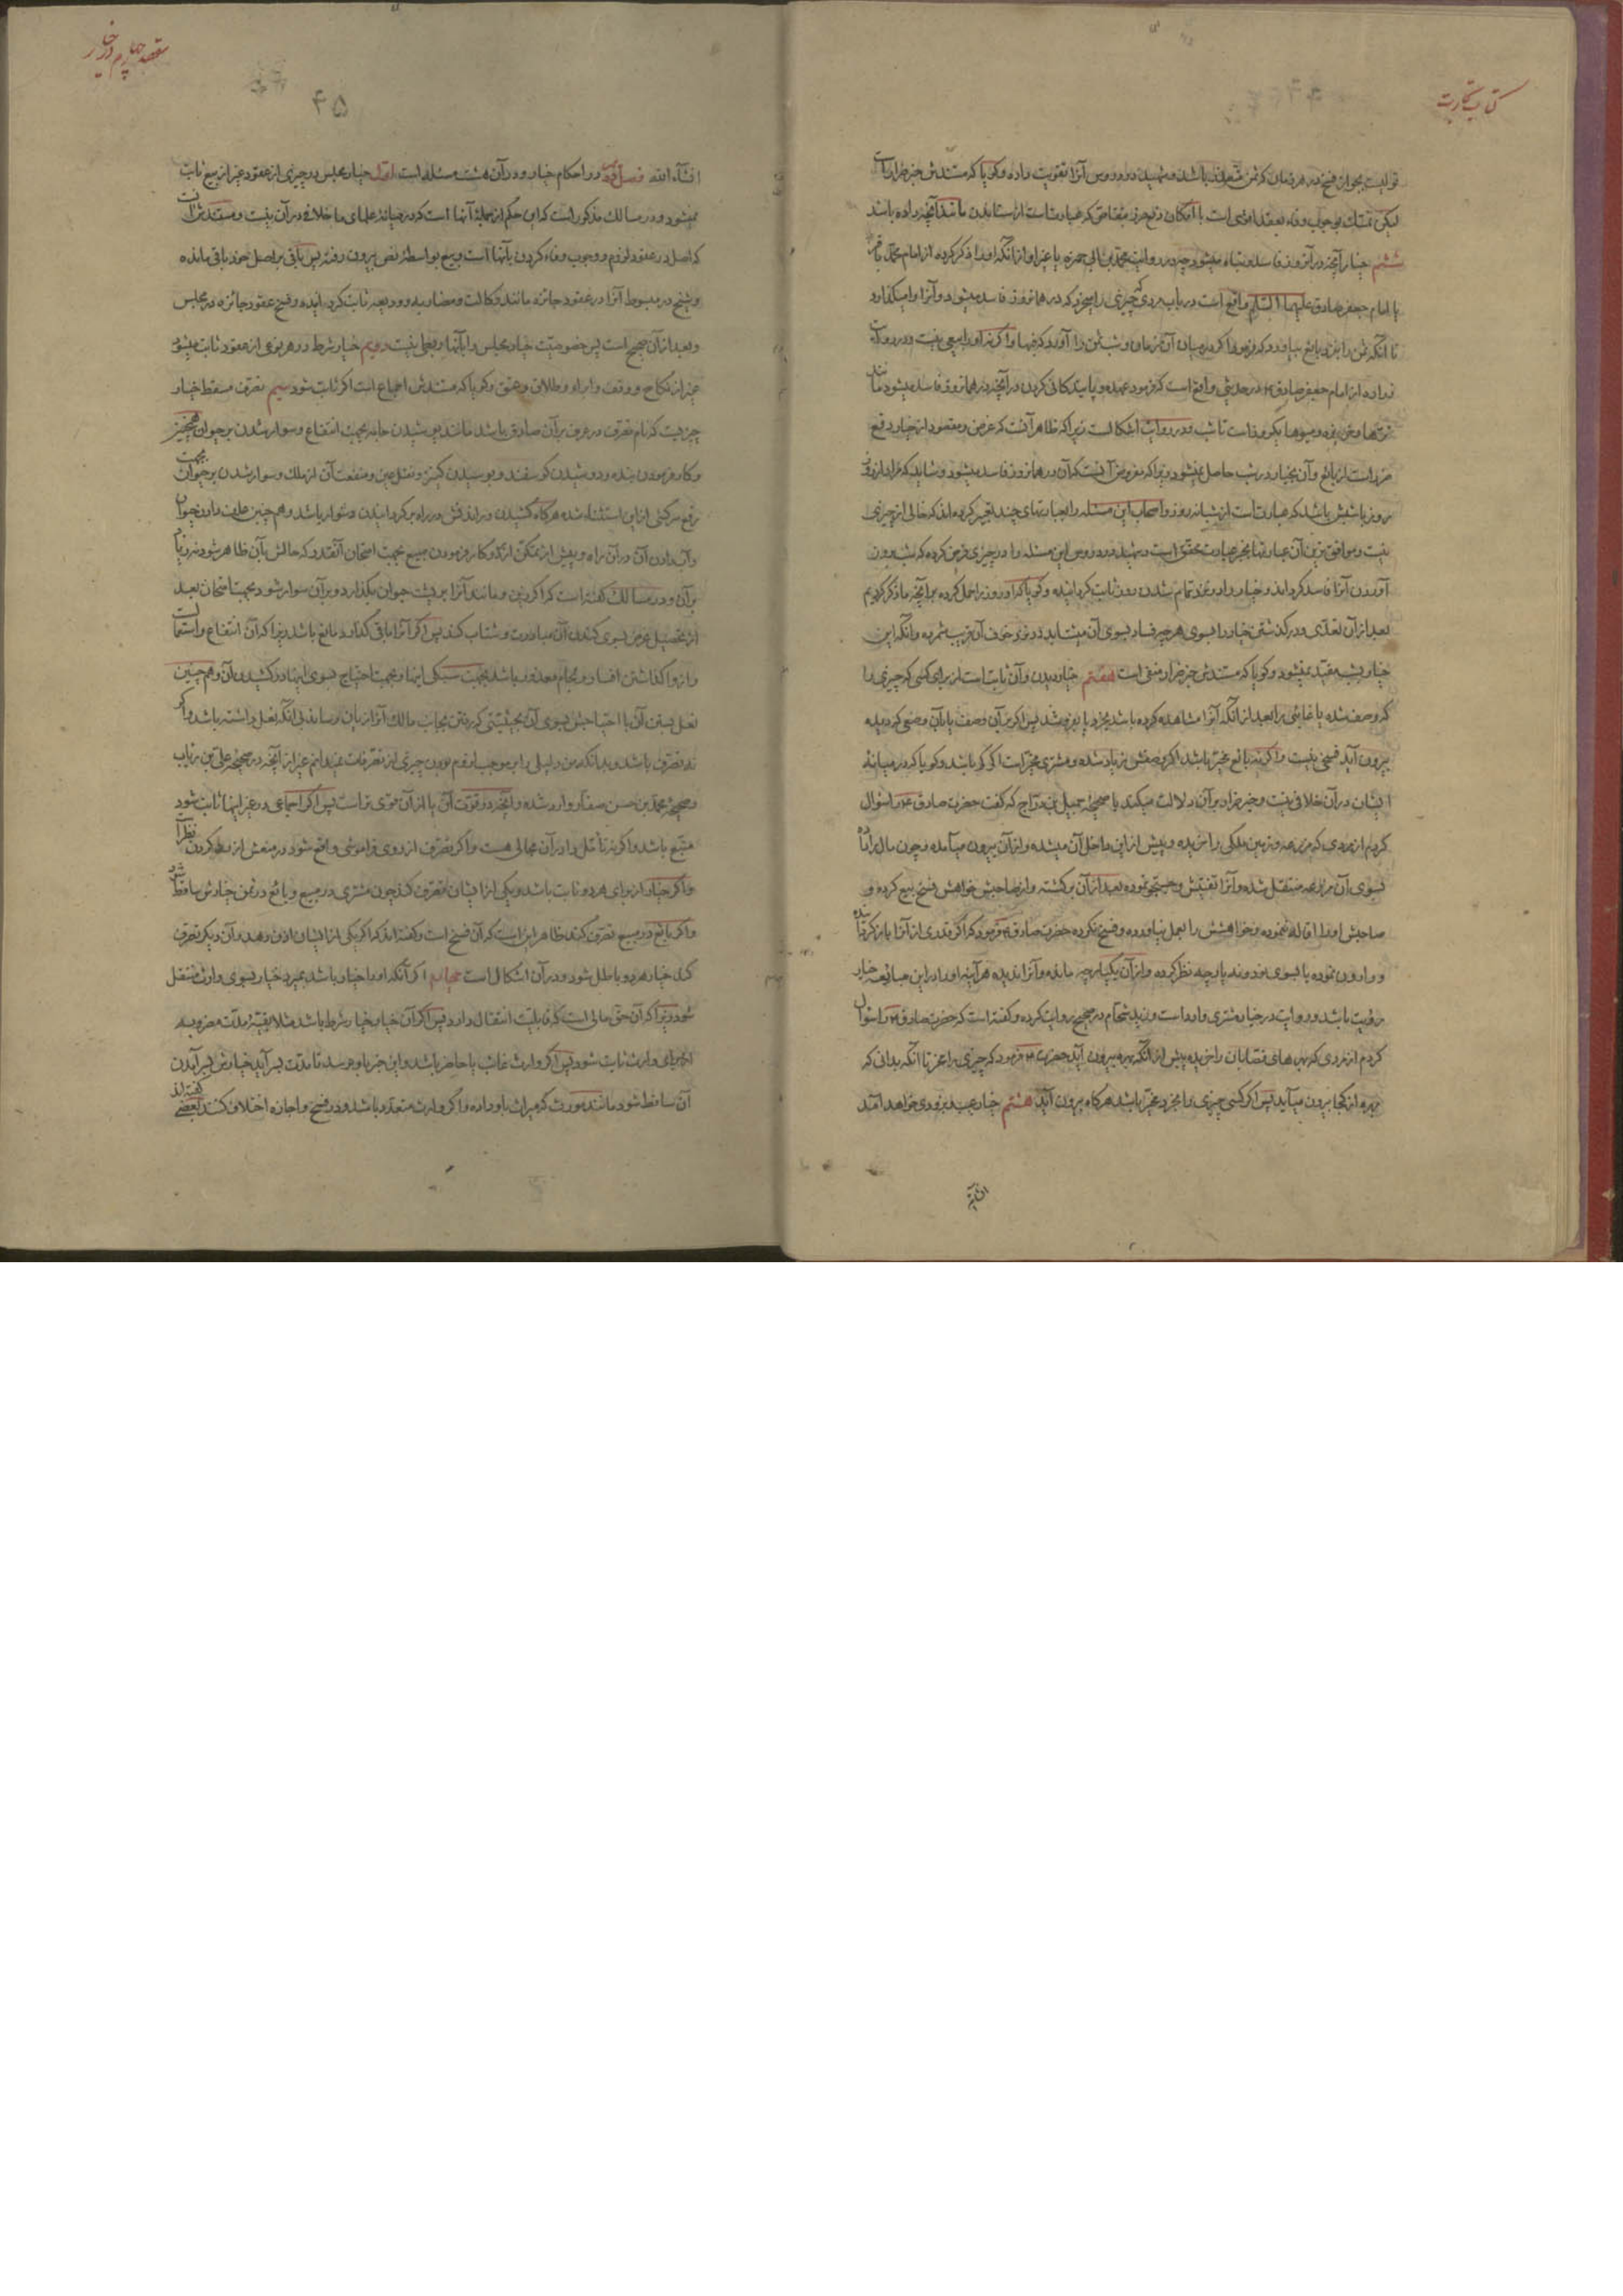 کتاب تجارت
قولیست بجواز فسخ در هر زمان که ثمن متعذر باشد و شهید در دروس آنرا تقویت داده و گویا که مستندش خبر ضرار است
لیکن تمسّک بوجوب وفاء بعقد اقوی است با امکان دفع ضرر بمقاصّه که عبارتست از ستاندن مانند آنچه داده باشد
ششم خیار آنچه در آنروز فاسد و تباه میشود چه در روایت محمد بن ابی حمزه یا غیر او از آنکه او را ذکر کرده از امام محمد باقر
یا امام جعفر صادق علیهما السّلام واقع است در باب مردی که چیزی را میخرد که در همانروز فاسد میشود و آنرا وامیگذارد
تا آنکه ثمن را نزد بایع بیاورد که فرمود اگر در میان آن زمان و شب ثمن را آورد که فبها و اگر نه او را بیعی نیست و در روایت
زراره از امام جعفر صادق در حدیثی واقع است که فرمود عهده و پایندکانی کردن در آنچه در همانروز فاسد میشود مانند
تره‌ها و خربزه و میوها یکروز است تا شب و در روایت اشکالست زیرا که ظاهر آنست که غرض و مقصود از خیار دفع
ضرر است از بایع و آن بخیار در شب حاصل نمیشود زیرا که مفروض آنست که آن در همانروز فاسد میشود و شاید که مراد از روز
روز با شبش باشد که عبارتست از شبانه روز و اصحاب این مسئله را بعبارتهای چند تعبیر کرده‌اند که خالی از چیزی
نیست و موافق‌ترین آن عبارتها بخبر عبارت محقق است و شهید در دروس این مسئله را در چیزی فرض کرده که شب درون
آوردن آنرا فاسد گرداند و خیار را در نزد تمام شدن روز ثابت گردانیده و گویا که او روز را حمل کرده بر آنچه ما ذکر کردیم
بعد از آن تعدّی و در گذشتن خیار را بسوی هر چیز فساد بسوی آن میشتابد در نزد خوف آن ترتیب نمرده و آنکه این
خیار بشب مقیّد نمیشود و گویا که مستندش خبر ضرار منفی است هفتم خیار دیدن و آن ثابت است از برای کسی که چیزی را
که وصف شده یا غایبی را بعد از آنکه آنرا مشاهده کرده باشد بخرد یا بفروشد پس اگر بر آن وصف یا بآن وضعی که دیده
بیرون آید فسخی نیست و اگر نه بایع مخیّر باشد اگر وصفش زیاد شده و مشتری مخیّر است اگر کم باشد و گویا که در میانهٔ
ایشان در آن خلافی نیست و خبر ضرار بر آن دلالت میکند با صحیحهٔ جمیل بن درّاج که گفت حضرت صادق را سئوال
کردم از مردی که مزرعه و زمین ملکی را خریده و پیش از این داخل آن میشده و از آن بیرون میآمده و چون مال را داده
بسوی آن مزرعه منتقل شده و آنرا تفتیش و جستجو نموده بعد از آن برگشته و از صاحبش خواهش فسخ بیع کرده و
صاحبش او را اقاله ننموده و خواهشش را بعمل نیاورده و فسخ نکرده حضرت صادق فرمود که اگر قدری از آنرا بازگردانیده
رؤیت باشد و روایت در خیار مشتری وارد است و زید شحّام در صحیح روایت کرده و گفته است که حضرت صادق را سئوال
کردم از مردی که بهره‌های قصّابان را خریده پیش از آنکه بهره بیرون آید حضرت فرمود که چیزی را مخر تا آنکه بدانی که
بهره از کجا بیرون میآید پس اگر کسی چیزی را بخرد مخیّر باشد هرگاه بیرون آید هشتم خیار عیب بزودی خواهد آمد
انشاءالله
مقصد چهارم در خیار
۴۵
انشآءالله فصل دویم در احکام خیار و در آن هشت مسئله است اول خیار مجلس در چیزی از عقود غیر از بیع ثابت
نمیشود و در مسالک مذکور است که این حکم از جملهٔ آنها است که در میانهٔ علمای ما خلافی در آن نیست و مستندش آنست
که اصل در عقود لزوم و وجوب وفاء کردن بآنها است و بیع بواسطهٔ نص بیرون رفته پس باقی بر اصل خود باقی مانده
و شیخ در مبسوط آنرا در عقود جائزه مانند وکالت و مضاربه و ودیعه ثابت گردانیده و فسخ عقود جائزه در مجلس
و بعد از آن صحیح است پس خصوصیّت خیار مجلس را بآنها ربطی نیست دویم خیار شرط در هر نوعی از عقود ثابت میشود
غیر از نکاح و وقف و ابراء و طلاق و عتق و گویا که مستندش اجماع است اگر ثابت شود سیم تصرّف مسقط خیار
چیزیست که نام تصرّف در عرف بر آن صادق باشد مانند پوشیدن جامه بجهت انتفاع و سوار شدن بر حیوان همچنین
و کار فرمودن بنده و دوشیدن گوسفند و بوسیدن کنیز و نقل عین و منفعت آن از ملک و سوار شدن بر حیوان بجهت
رفع سرکشی از این استثناء شده هرگاه کشیدن و راندنش در راه برگردانیدن دشوار باشد و هم چنین علف دادن حیوان
و آب دادن آن در آن راه و پیش از تمکّن از ردّ و کار فرمودن مبیع بجهت امتحان آنقدر که حالش بآن ظاهر شود نه زیاده
بر آن و در مسالک گفته است که اگر زین و مانند آنرا بر پشت حیوان بگذارد و بر آن سوار شود بجهت امتحان بعد
از تحصیل غرض بسوی کندن آن مبادرت و شتاب کند پس اگر آنرا باقی گذارد مانع باشد زیرا که آن انتفاع و استعمالست
و از واگذاشتن افسار و لجام معذور باشد بجهت سبکی اینها و بجهت احتیاج بسوی اینها در کشیدن آن و هم چنین
نعل بستن آن با احتیاجش بسوی آن بحیثیّتی که رفتن بجانب مالک آنرا زیان رساند بی آنکه نعل داشته باشد و اگر
نه تصرّف باشد و بدانکه من دلیلی را بر موجب لزوم بودن چیزی از تصرّفات نمیدانم غیر از آنچه در صحیحهٔ علی بن ریاب
و صحیحهٔ محمد بن حسن صفّار وارد شده و آنچه در قوّت آن یا از آن قوی‌تر است پس اگر اجماعی در غیر اینها ثابت شود
متّبع باشد و اگر نه تأمّل را در آن مجالی هست و اگر تصرّف از روی فراموشی واقع شود در منعش از رد کردن نظر است
و اگر خیار از برای هر دو ثابت باشد و یکی از ایشان تصرّف کند چون مشتری در مبیع و بایع در ثمن خیارش ساقط شود
و اگر بایع در مبیع تصرّف کند ظاهر این است که آن فسخ است و گفته‌اند که اگر یکی از ایشان اذن دهد و آن دیگر تصرّف
کند خیار هر دو باطل شود و در آن اشکال است چهارم اگر آنکه او را خیار باشد بمیرد خیار بسوی وارث منتقل
شود زیرا که آن حق مالی است که قابلیّت انتقال دارد پس اگر آن خیار خیار شرط باشد مثلا بقیّهٔ مدّت مضروبه
از برای وارث ثابت شود پس اگر وارث غایب یا حاضر باشد و این خبر باو نرسد تا مدّت بسر آید خیارش بسر آمدن
آن ساقط شود مانند مورث که میراث باو داده و اگر وارث متعدّد باشد و در فسخ و اجازه اختلاف کنند بعضی گفته‌اند